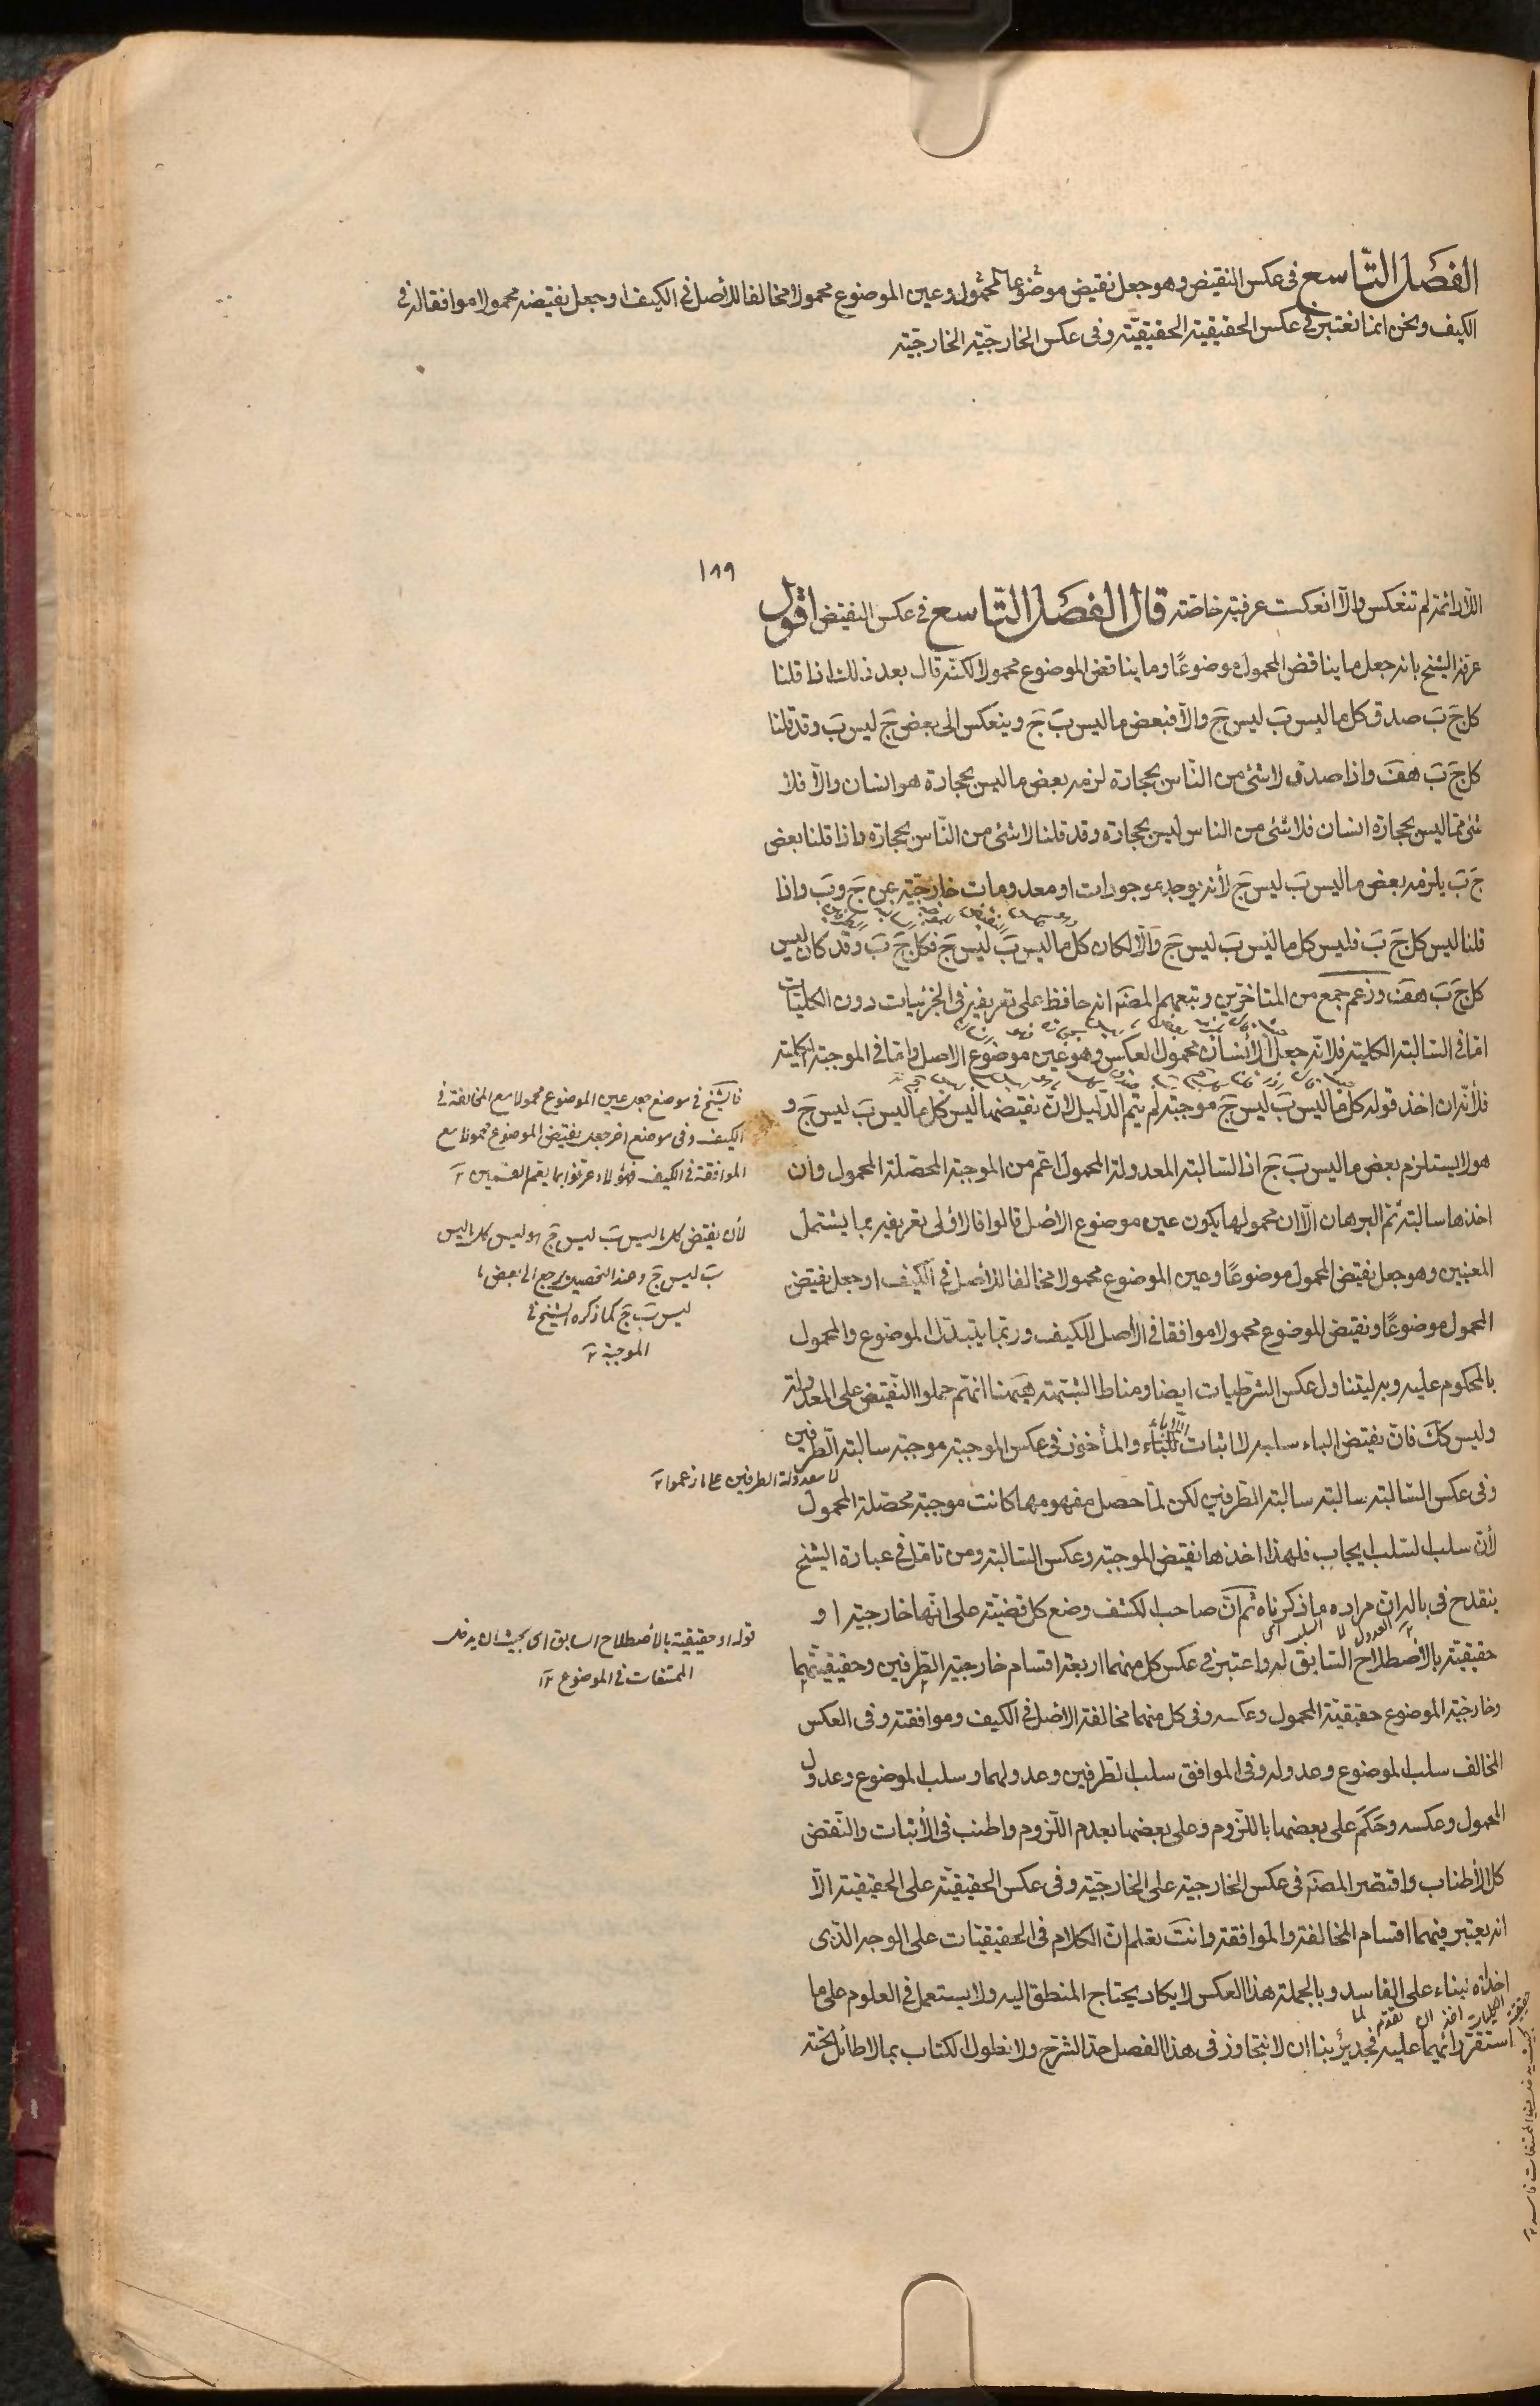 الفصل التّاسع في عكس النقيض وهو جعل نقيض المحمول موضوعا وعين الموضوع محمولا مخالفا للأصل في الكيف او جعل نقيضه محمولا موافقا له في
الكيف ونحن انما نعتبر في عكس الحقيقية الحقيقيّة وفى عكس الخارجيّة الخارجيّة
١٨٩
اللّادائمة لم تنعكس والّا انعكست عرفية خاصّة قال الفصل التّاسع في عكس النقيض اقول
عرفه الشيخ بانه جعل ما يناقض المحمول موضوعًا وما يناقض الموضوع محمولا لكنّه قال بعد ذلك اذا قلنا
كل جَ بَ صدق كل ما ليس بَ ليس جَ والّا فبعض ما ليس بَ جَ وينعكس الى بعض جَ ليس بَ وقد قلنا
كل جَ بَ هف واذا صدق لا شئ من النّاس بحجارة لزمه بعض ما ليس بحجارة هو انسان والّا فلا
شئ ممّا ليس بحجارة انسان فلا شئ من الناس ليس بحجارة وقد قلنا لا شئ من النّاس بحجارة واذا قلنا بعض
جَ بَ يلزمه بعض ما ليس بَ ليس جَ لأنه يوجد موجودات او معدومات خارجيّة عن جَ وبَ واذا
قلنا ليس كل جَ بَ فليس كل ما ليس بَ ليس جَ والّا لكان كل ما ليس بَ ليس جَ فكل جَ بَ وقد كان ليس
كل جَ بَ هف وزعم جمع من المتأخّرين وتبعهم المصنّه انه حافظ على تعريفه في الجزئيات دون الكليّات
امّا في السّالبة الكلية فلانّه جعل الأنسان محمول العكس وهو عين موضوع الاصل وامّا في الموجبة الكلية
فلأنّه ان اخذ قوله كل ما ليس بَ ليس جَ موجبة لم يتم الدّليل لانّ نقيضها ليس كل ما ليس بَ ليس جَ و
هو لا يستلزم بعض ما ليس بَ جَ اذ السّالبة المعدولة المحمول اعم من الموجبة المحصّلة المحمول وان
اخذها سالبة تمّ البرهان الّا ان محمولها يكون عين موضوع الاصل قالوا فالاولى تعريفه بما يشتمل
المعنيين وهو جعل نقيض المحمول موضوعًا وعين الموضوع محمولا مخالفا للأصل في الكيف او جعل نقيض
المحمول موضوعًا ونقيض الموضوع محمولا موافقا في الأصل للكيف وربّما يتبدّل الموضوع والمحمول
بالمحكوم عليه وبه ليتناول عكس الشرطيات ايضا ومناط الشبّهة هيهنا انهم حملوا النّقيض على المعدولة
وليس كك فانّ نقيض الباء سلبه لا اثبات اللّاباء والمأخوذ في عكس الموجبة موجبة سالبة الطّرفين
وفى عكس السّالبة سالبة سالبة الطّرفين لكن لمّا حصل مفهومها كانت موجبة محصّلة المحمول
لأنّ سلب السّلب ايجاب فلهذا اخذها نقيض الموجبة وعكس السّالبة ومن تامّل في عبارة الشيخ
ينقدح في باله ان مراده ما ذكرناه ثم انّ صاحب الكشف وضع كل قضيّة على انّها خارجيّة او
حقيقيّة بالأصطلاح السّابق له واعتبر في عكس كل منهما اربعة اقسام خارجية الطّرفين وحقيقيتهما
وخارجيّة الموضوع حقيقيّة المحمول وعكسه وفى كل منهما مخالفة الاصل في الكيف وموافقته وفى العكس
المخالف سلب الموضوع وعدوله وفى الموافق سلب الطرفين وعدولهما وسلب الموضوع وعدول
المحمول وعكسه وحَكَم على بعضها باللّزوم وعلى بعضها بعدم اللّزوم واطنب في الأثبات والنّقض
كل الأطناب واقتصر المصنّه في عكس الخارجية على الخارجيّة وفى عكس الحقيقيّة على الحقيقية الّا
انه يعتبر فيهما اقسام المخالفة والموافقة وانتَ تعلم انّ الكلام في الحقيقيّات على الوجه الّذى
اخذه بناء على الفاسد وبالجملة هذا العكس لا يكاد يحتاج المنطق اليه ولا يستعمل في العلوم على ما
استقرّ رأيهما عليه فجدير بنا ان لا نتجاوز في هذا الفصل حدّ الشرح ولا نطول الكتاب بما لا طائل تحته
فالشيخ في موضع جعل عين الموضوع محمولا مع المخالفة في
الكيف وفى موضع اخر جعل نقيض الموضوع محمولا مع
الموافقة في الكيف فهؤلاء عرّفوا بما يعم القسمين
لأن نقيض كل ما ليس بَ ليس جَ هو ليس كل ما ليس
بَ ليس جَ وعند التحصيل يرجع الى بعض ما
ليس بَ جَ كما ذكره الشيخ في
الموجبة
لا معدولة الطرفين على ما زعموا
قوله او حقيقية بالأصطلاح السابق اى بحيث ان يدخل
الممتنعات في الموضوع